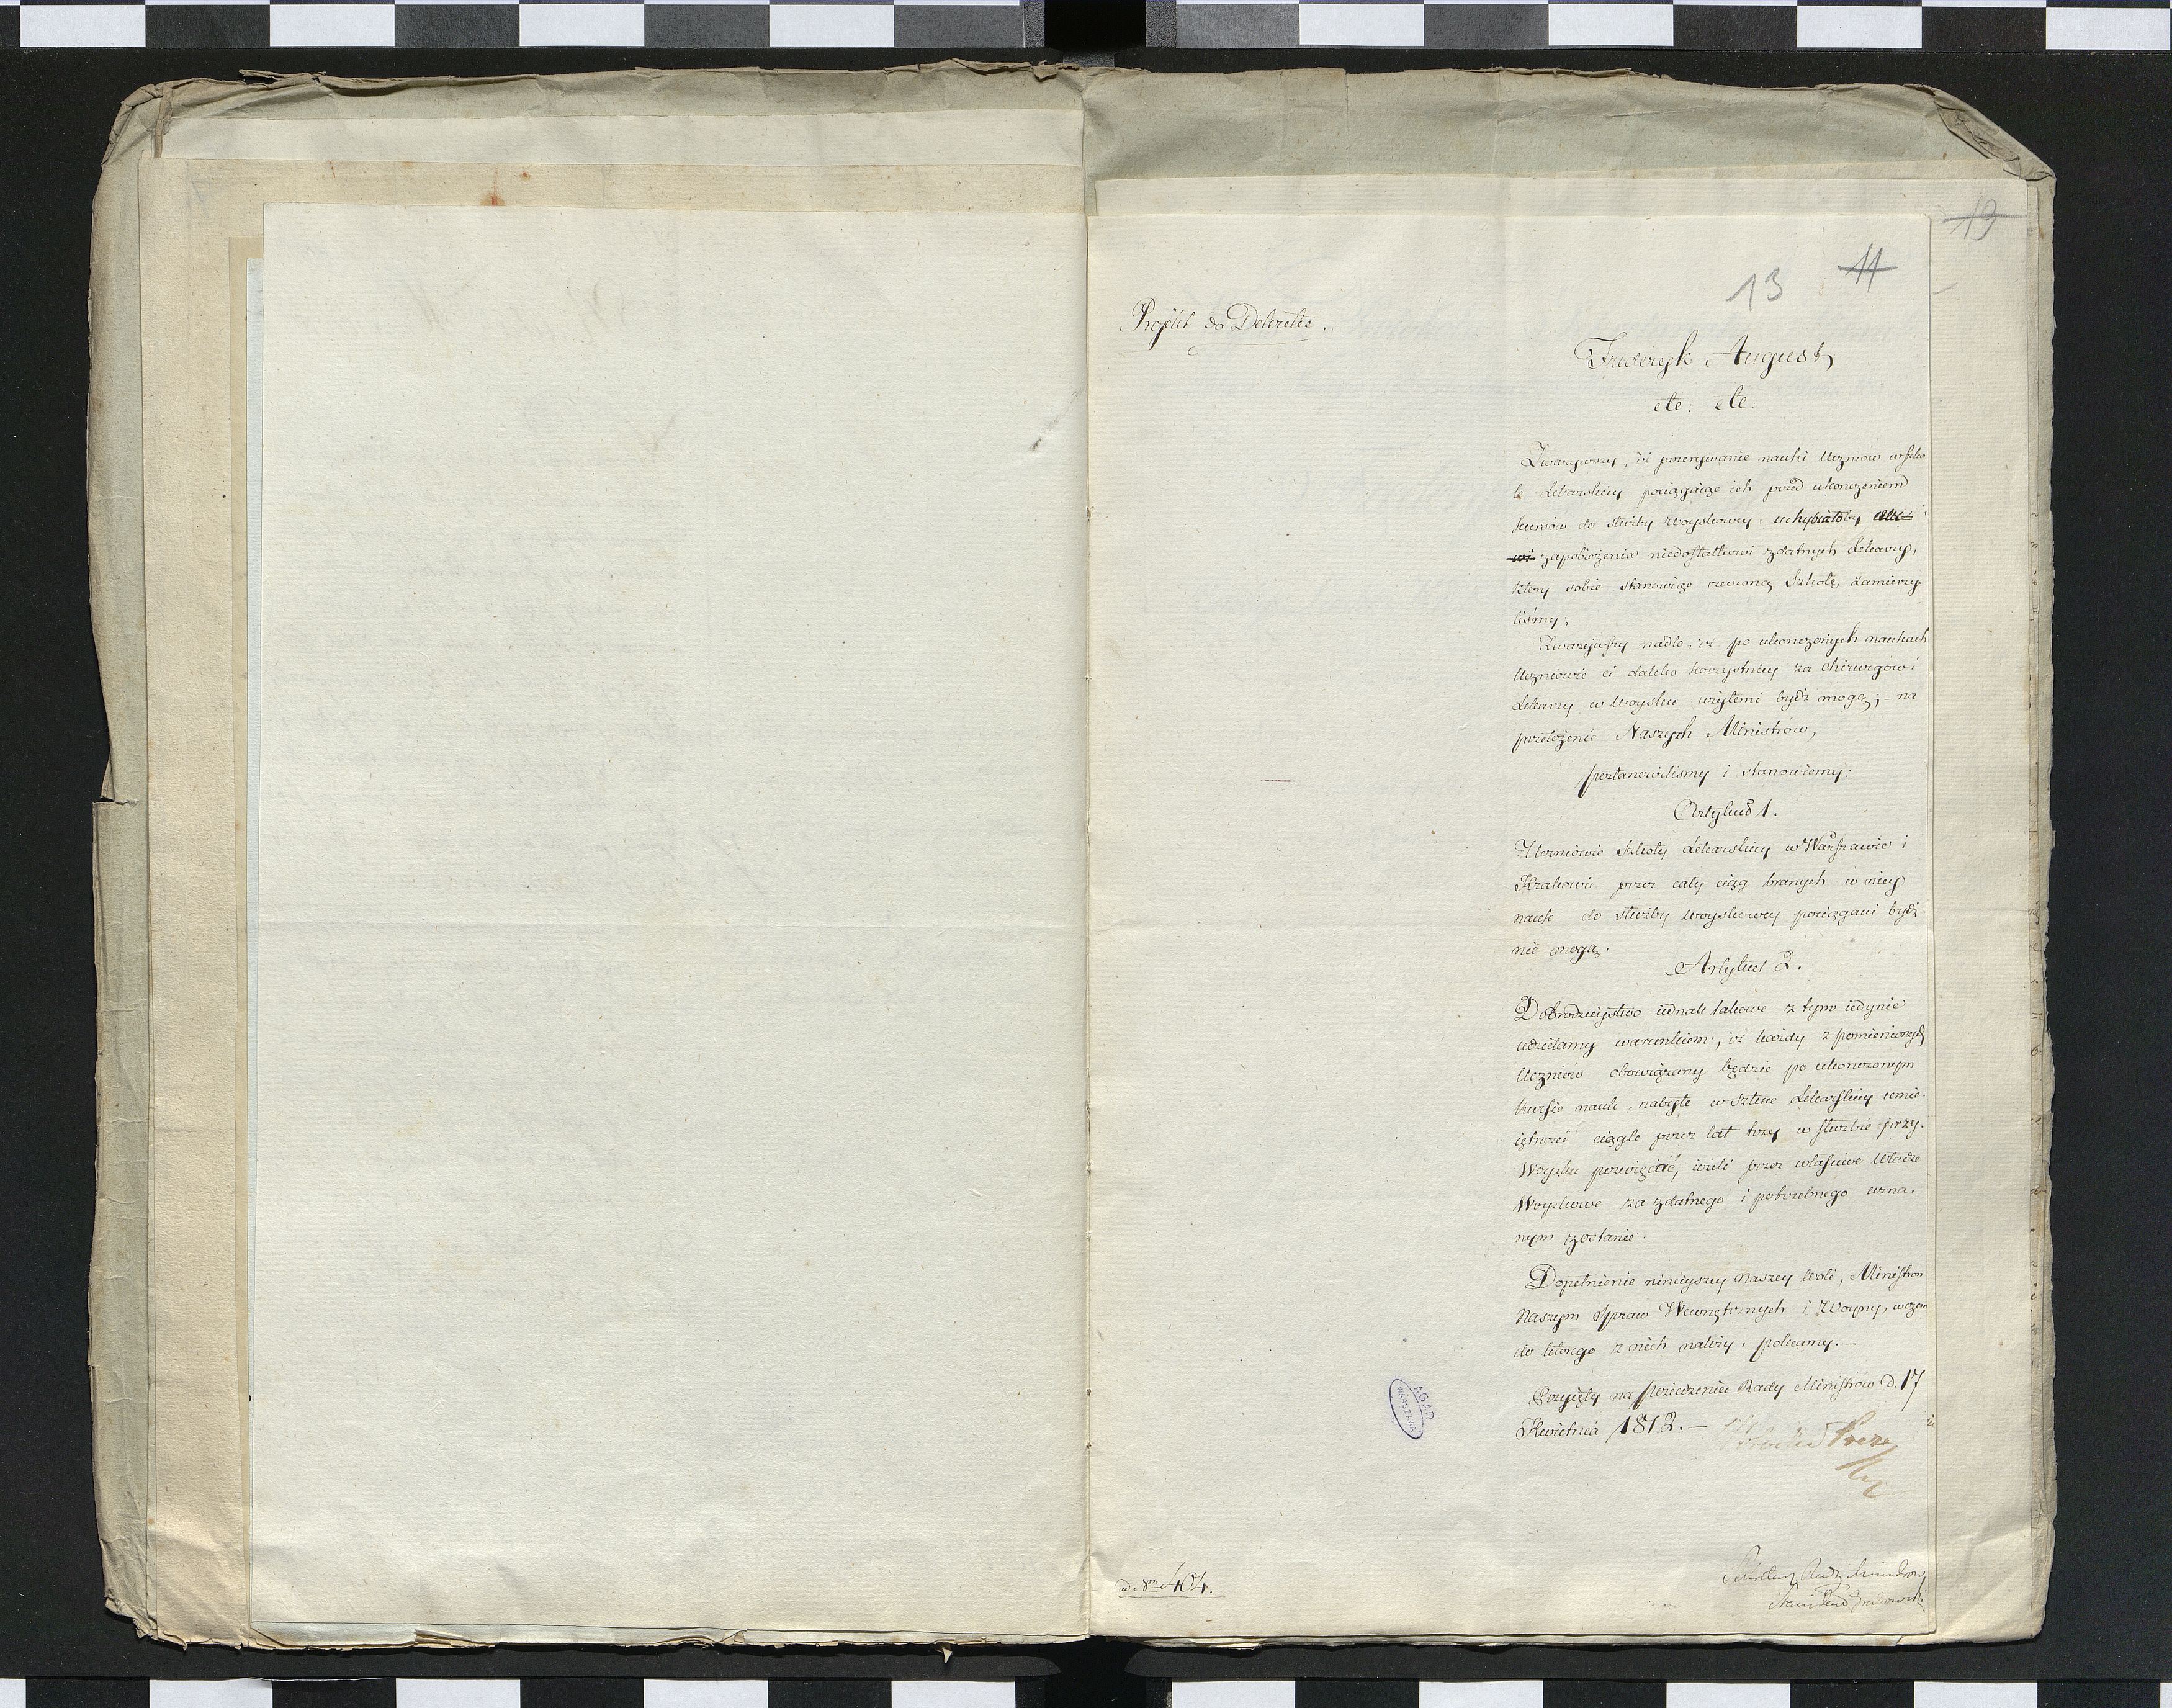 19
11
13
Projekt do Dekretu.
Fryderyk August,
etc: etc:
Zważywszy, iż przerywanie nauki Uczniów w szko
le Lekarskiey pociągaiąc ich przed ukończeniem
kursów do służby woyskowey, uchybiałoby
zapobieżenia niedostatkowi zdatnych Lekarzy,
który sobie stanowiąc rzeczoną Szkołę zamierzy-
liśmy;
Zważywszy nadto, iż po ukończonych naukach
Uczniowie ci daleko korzystniey za Chirurgów i
Lekarzy w Woysku wziętemi bydź mogą; – na
przełożenie Naszych Ministrów,
postanowiliśmy i stanowiemy:
Artykuł 1.
Uczniowie Szkoły Lekarskiey w Warszawie i
Krakowie przez cały ciąg branych w niey
nauk do służby woyskowey pociągani bydź
nie mogą.
Artykuł 2.
Dobrodzieystwo iednak takowe z tym iedynie
udzielamy warunkiem, iż każdy z pomienionych
Uczniów obowiązany będzie po ukończonym
kursie nauk, nabyte w sztuce Lekarskiey umie-
iętności ciągle przez lat trzy w służbie przy
Woysku poświęcić, ieżeli przez właściwe Władze
Woyskowe za zdatnego i potrzebnego uzna-
nym zostanie.
Dopełnienie ninieyszey Naszey woli, Ministrom
Naszym Spraw Wewnętrznych i Woyny, w czem
do którego z nich należy, polecamy. –
Przyięty na posiedzeniu Rady Ministrów d. 17
Kwietnia 1812. –
Prezes
AGAD
WARSZAWA
ad Nrm 404.
Sekretarz Rady Ministrów
Grabowski